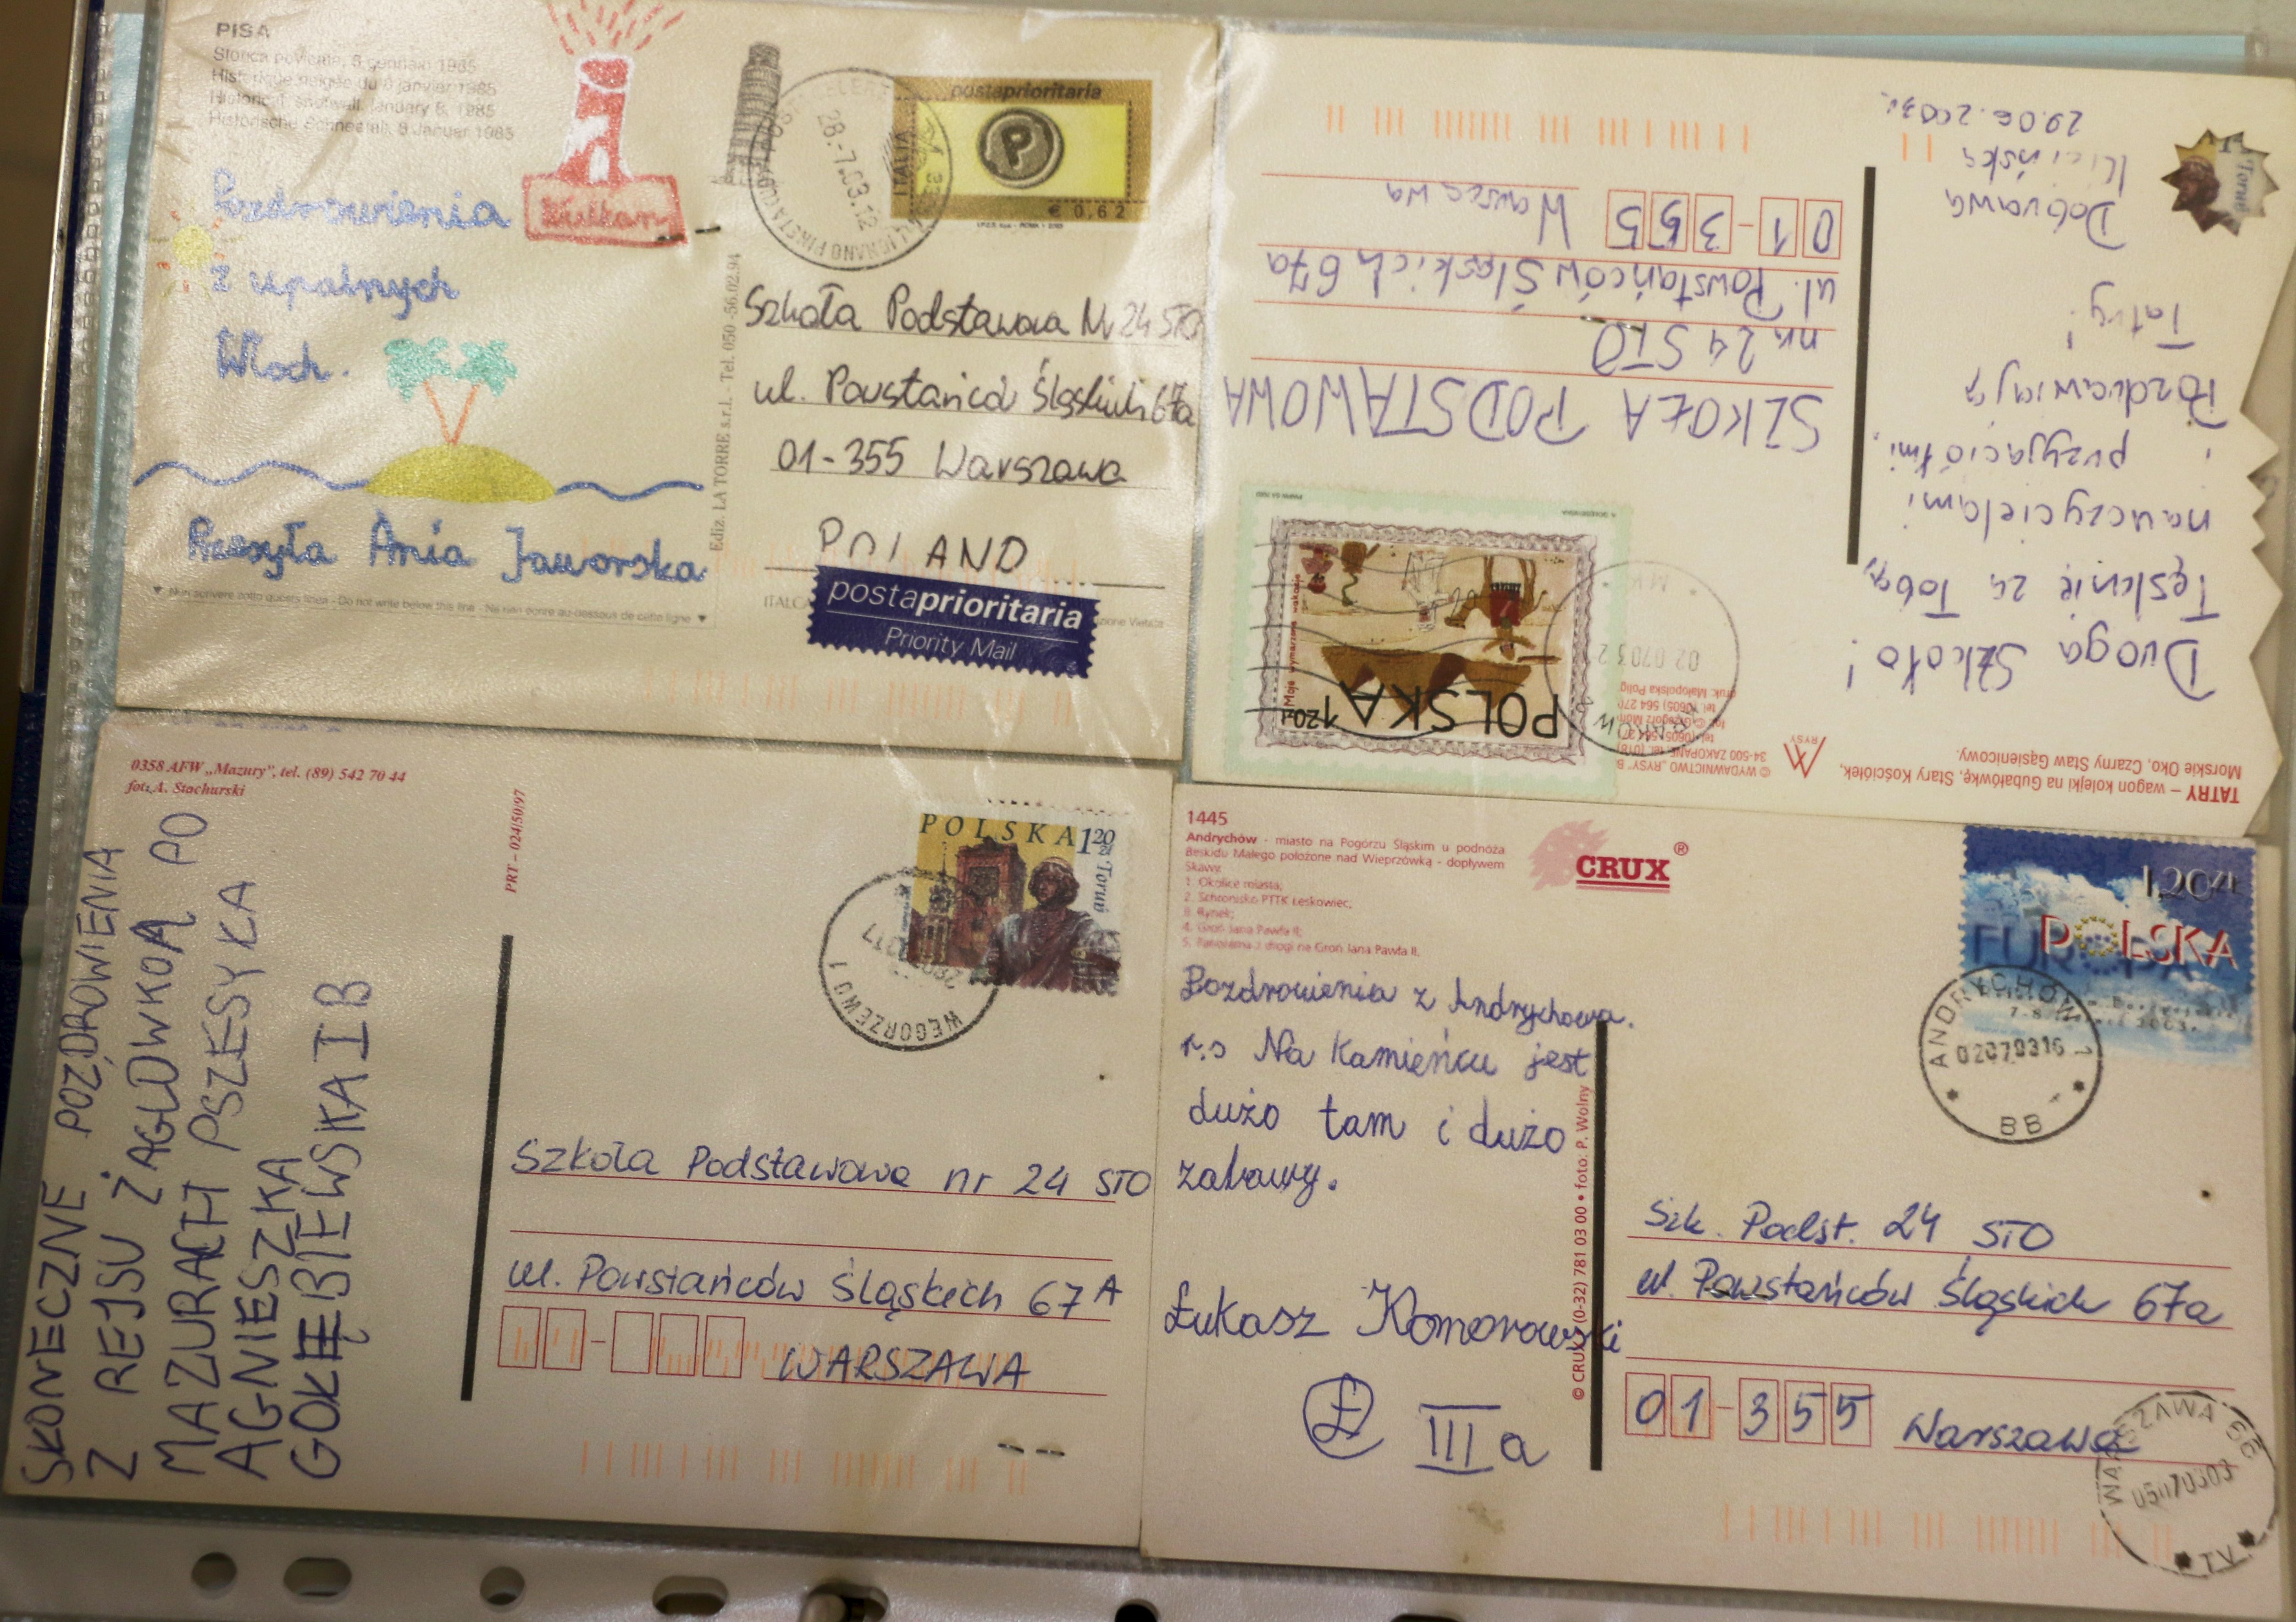 PISA
Storica nevicata, 6 gennaio 1985
Historique neigée du 6 janvier 1985
Historical snowfall, January 6, 1985
Historische Schneefall, 6 Januar 1985
Pozdrowienia
z upalnych
Włoch.
Przesyła Ania Jaworska
Wulkan
Non scrivere sotto questa linea - Do not write below this line - Ne rien écrire au-dessous de cette ligne
Ediz. LA TORRE s.r.l. - Tel. 050 -56.02.94
28.-7.03.12
postaprioritaria
P
ITALIA
€ 0,62
Szkoła Podstawowa Nr 24 STO
ul. Powstańców Śląskich 67a
01-355 Warszawa
POLAND
postaprioritaria
Priority Mail
TATRY – wagon kolejki na Gubałówkę, Stary Kościółek,
Morskie Oko, Czarny Staw Gąsienicowy.
RYSY
© WYDAWNICTWO „RYSY" B
34-500 ZAKOPANE
Droga Szkoło!
Tęsknię za Tobą,
nauczycielami
i przyjaciółmi.
Pozdrawiają
Tatry!
Dobrawa
Kicińska
29.06.2003r.
Moje wymarzone wakacje
POLSKA 120zł
SZKOŁA PODSTAWOWA
nr 24 STO
ul. Powstańców Śląskich 67a
01-355 Warszawa
Toruń
0358 AFW „Mazury", tel. (89) 542 70 44
fot. A. Stachurski
PRT – 024/50/97
SKONECZNE POZDROWIENIA
Z REJSU ŻAGLOWKOA PO
MAZURACH PSZESYŁKA
AGNIESZKA
GOŁĘBIEWSKA I B
POLSKA 120 zł
Toruń
WĘGORZEWO 1
Szkoła Podstawowa nr 24 STO
ul. Powstańców Śląskich 67A
WARSZAWA
1445
Andrychów - miasto na Pogórzu Śląskim u podnóża
Beskidu Małego położone nad Wieprzówką - dopływem
Skawy.
1. Okolice miasta;
2. Schronisko PTTK Leskowiec;
3. Rynek;
4. Groń Jana Pawła II;
5. Panorama z drogi na Groń Jana Pawła II.
CRUX®
Pozdrowienia z Andrychowa.
p.s Na Kamieńcu jest
dużo tam i dużo
zabawy.
Łukasz Komorowski
Ł III a
© CRUX (0-32) 781 03 00 • foto. P. Wolny
1.20zł
POLSKA
EUROPA
ANDRYCHÓW 1
02070316
BB
Szk. Podst. 24 STO
ul. Powstańców Śląskich 67a
01-355 Warszawa
WARSZAWA 66